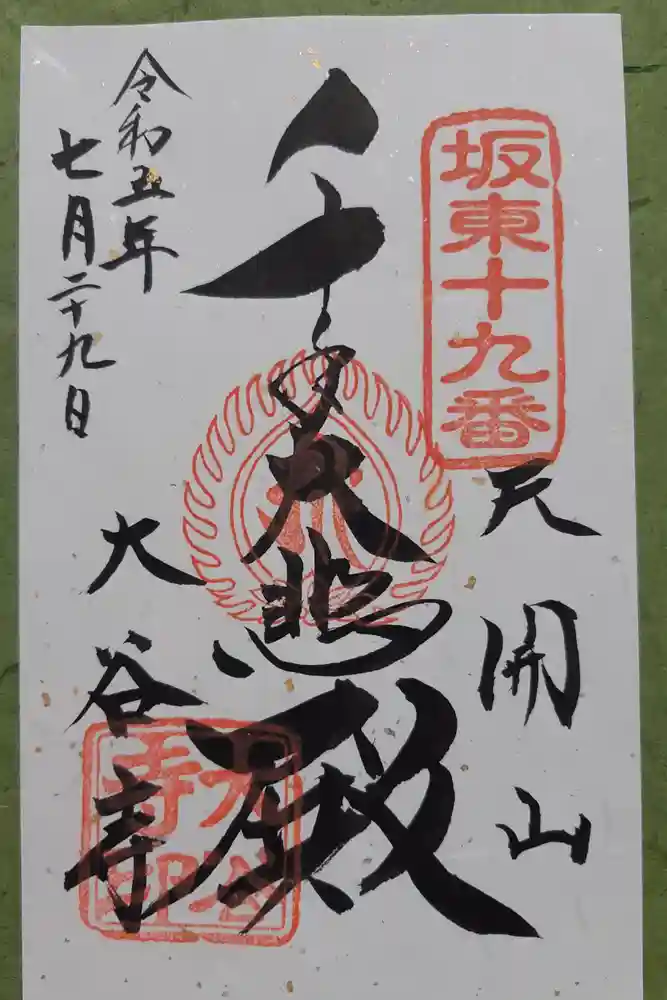 坂東十九番
天開山
千手大悲殿
大谷寺
令和五年
七月二十九日
大谷
寺印